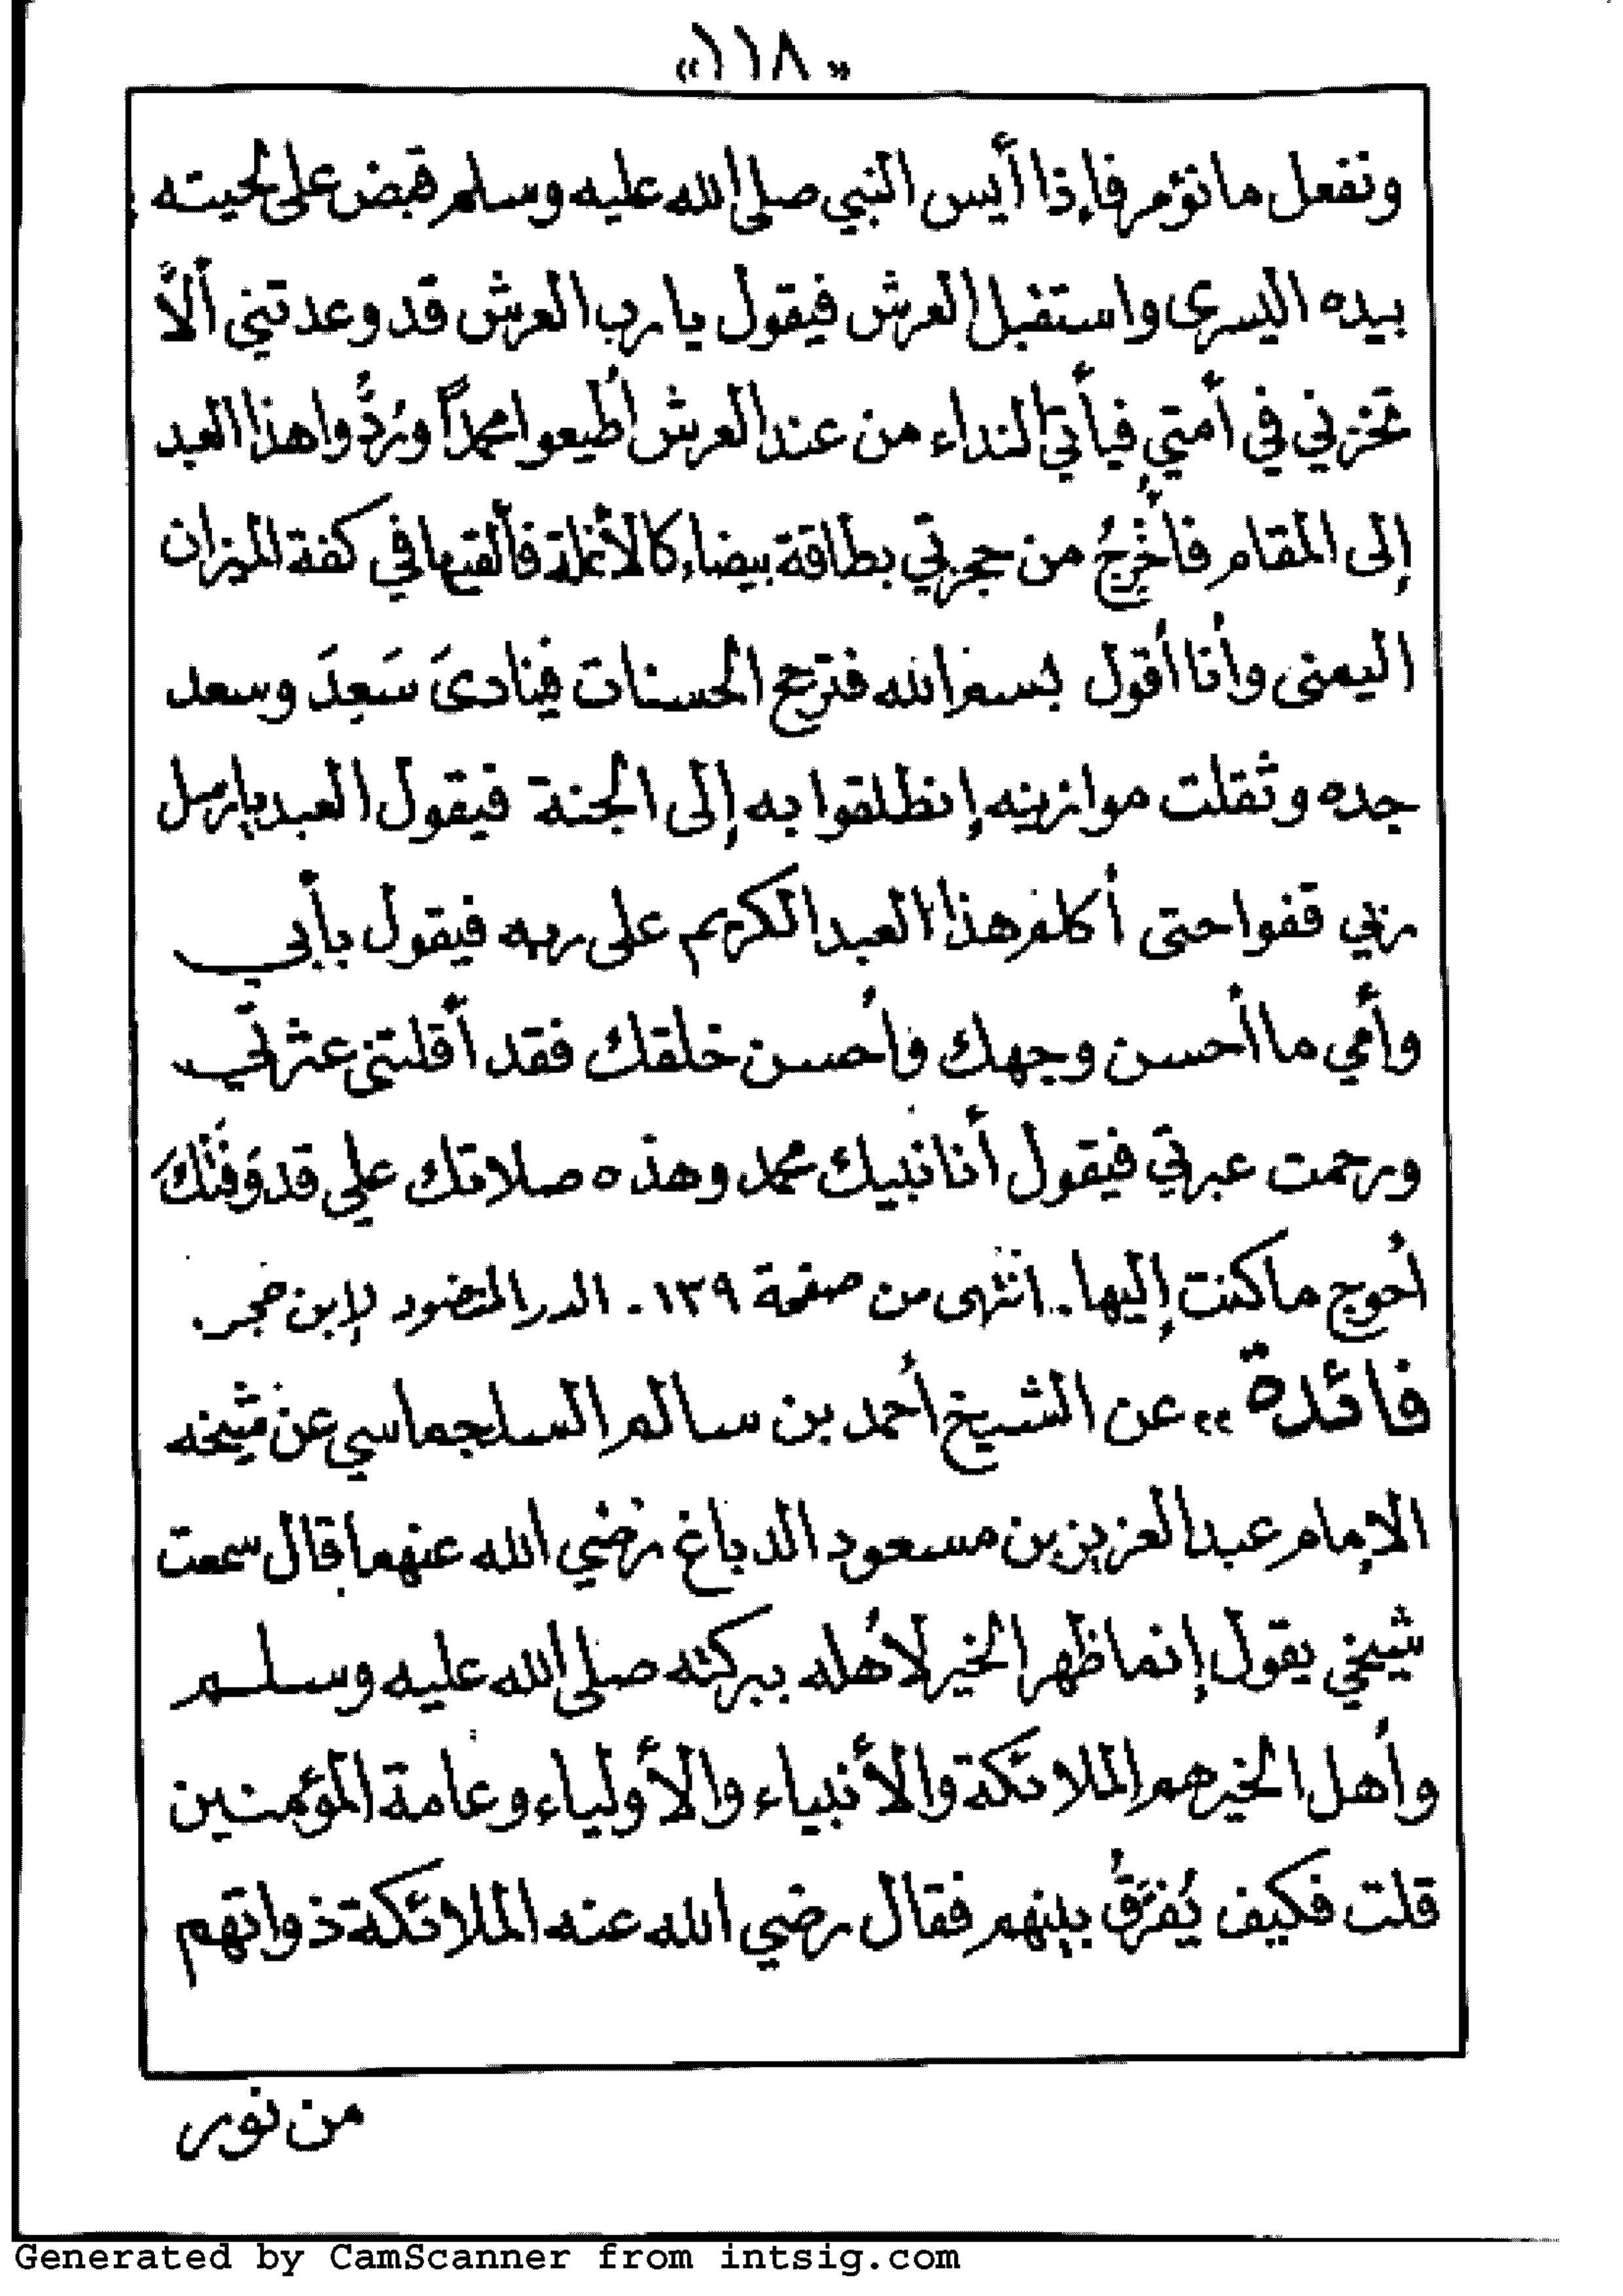 «١١٨»
ونفعل ما نؤمر فإذا أيس النبي صلى الله عليه وسلم قبض على لحيته
بيده اليسرى واستقبل العرش فيقول يارب العرش قد وعدتني ألاَّ
تخزني في أمتي فيأتي النداء من عند العرش أطيعوا محمداً ورُدُّوا هذا العبد
إلى المقام فأُخْرِجُ من حجزتي بطاقة بيضاء كالأنملة فألقيها في كفة الميزان
اليمنى وأنا أقول بسم الله فترجح الحسنات فينادىَ سَعِدَ وسعد
جده وثقلت موازينه إنطلقوا به إلى الجنة فيقول العبد يا رسل
ربي قفوا حتى أكلم هذا العبد الكريم على ربه فيقول بأبي
وأمي ما أحسن وجهك وأحسن خلقك فقد أقلتني عثرتي
ورحمت عبرتي فيقول أنا نبيك محمد وهذه صلاتك علي قد وَفَتْكَ
أحوج ما كنت إليها.. انتهى من صفحة ١٣٩ - الدر المنضود لإبن حجر.
فائدة «عن الشيخ أحمد بن سالم السلجماسي عن شيخه
الإمام عبد العزيز بن مسعود الدباغ رضي الله عنهما قال سمعت
شيخي يقول إنما ظهر الخير لأهله ببركته صلى الله عليه وسلم
وأهل الخير هم الملائكة والأنبياء والأولياء وعامة المؤمنين
قلت فكيف يُفَرَّقُ بينهم فقال رضي الله عنه الملائكة ذواتهم
من نور
Generated by CamScanner from intsig.com